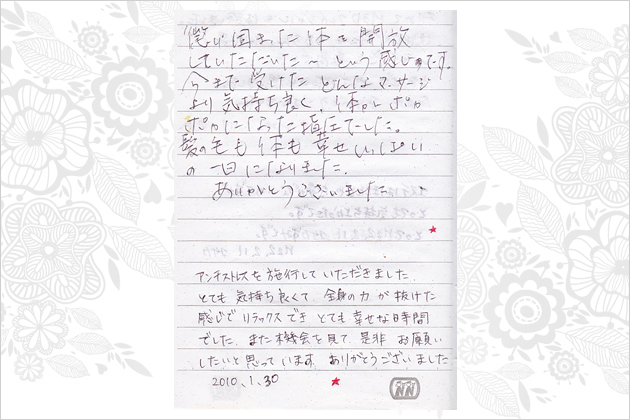 固まった体を開放
していただいた〜 という感じです。
今まで受けた どんなマッサージ
より気持ち良く、体がポカ
ポカになった 塩でした。
髪の毛も体も幸せいっぱい
の一日になりました。
ありがとうございました
アンチストレスを施行していただきました。
とても 気持ち良くて 全身の力が抜けた
感じで リラックスでき とても幸せな時間
でした。また機会を見て 是非 お願い
したいと思っています。ありがとうございました
2010.1.30
NN